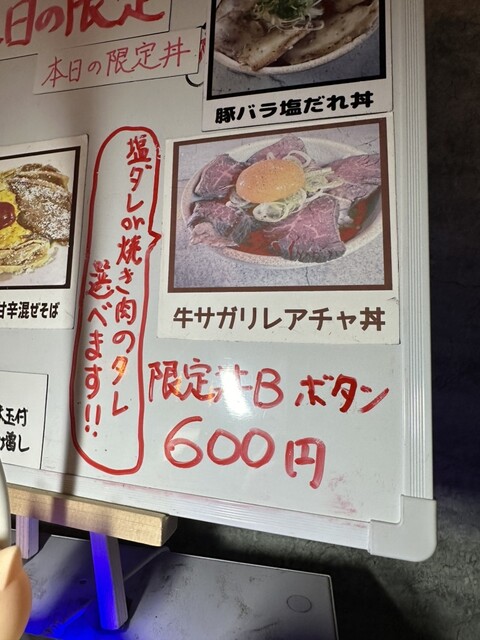 日の限定
本日の限定丼
豚バラ塩だれ丼
塩ダレor焼き肉のタレ
選べます!!
甘辛混ぜそば
牛サガリレアチャ丼
限定丼B ボタン
600円
味玉付